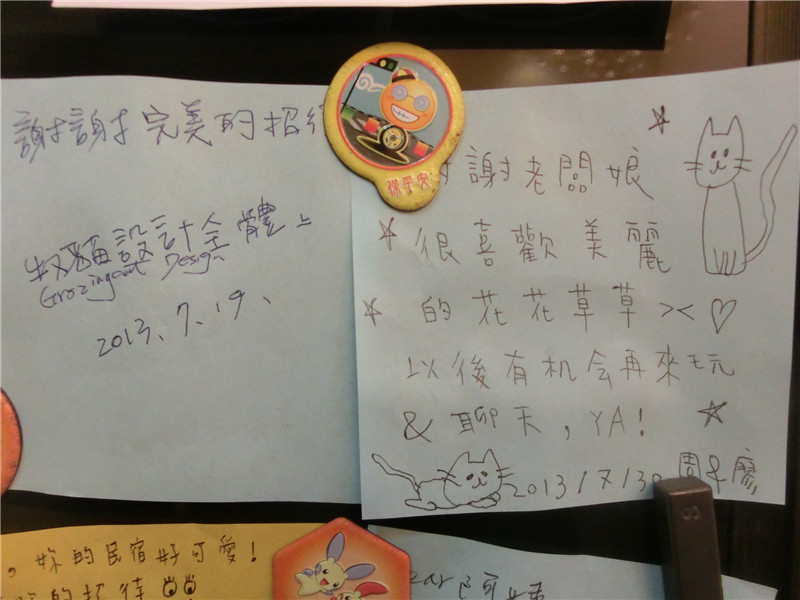 謝謝完美的招
牧頭設計全體上
Grazingcow Design
2013.7.19.
保平安
謝老闆娘
很喜歡美麗
的花花草草><♡
以後有机会再來玩
& 聊天,YA!
2013/7/30 周&廖
,妳的民宿好可愛!
的招待
ear 阿姨